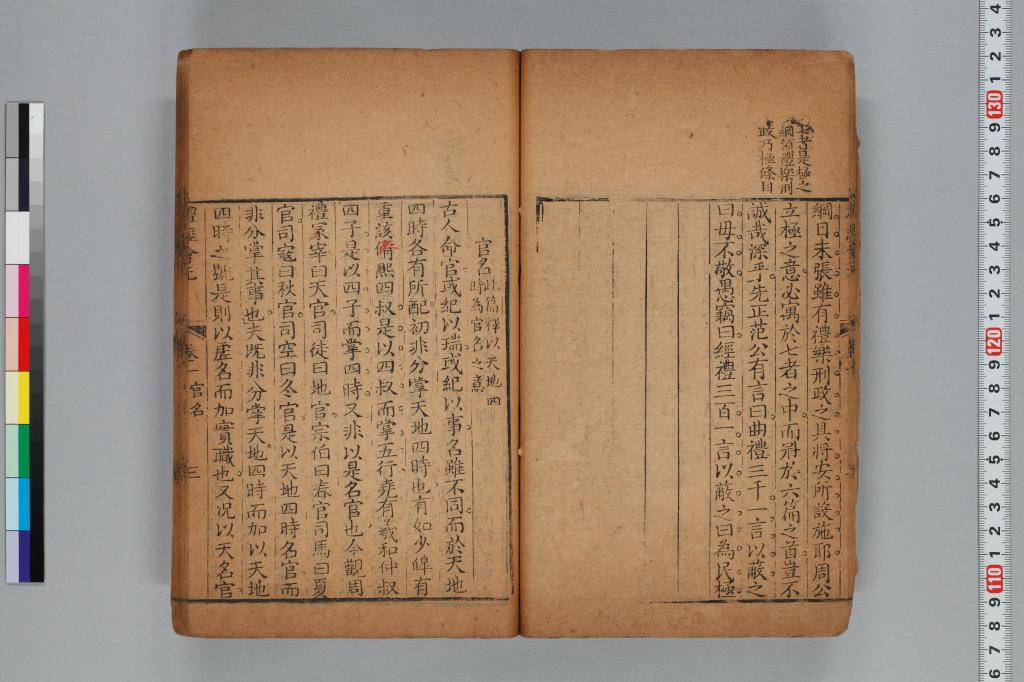 七者是極之
綱領禮樂刑
政乃極條目
綱目未張雖有禮樂刑政之具將安所設施耶周公
立極之意必寓於七者之中而冠於六篇之首豈不
誠哉深乎先正范公有言曰曲禮三千一言以蔽之
曰毋不敬愚竊曰經禮三百一言以蔽之曰為民極
官名
此篇釋以天地四
時為官名之意
古人命官或紀以瑞或紀以事名雖不同而於天地
四時各有所配初非分掌天地四時也有如少皡有
重該脩熙四叔是以四叔而掌五行堯有羲和仲叔
四子是以四子而掌四時又非以是名官也今觀周
禮冢宰曰天官司徒曰地官宗伯曰春官司馬曰夏
官司寇曰秋官司空曰冬官是以天地四時名官而
非分掌其事也夫既非分掌天地四時而加以天地
四時之號是則以虛名而加實職也又況以天名官
禮經會元
卷一 官名
三
4
3
2
1
130
9
8
7
6
5
4
3
2
1
120
9
8
7
6
5
4
3
2
1
110
9
8
7
6